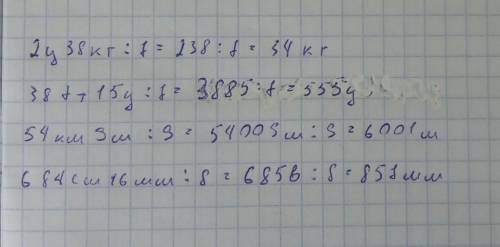 2ц 38кг : 7 = 238 : 7 = 34 кг
387т 15ц : 7 = 3885 : 7 = 555ц
54км 9м : 9 = 54009м : 9 = 6001м
684см 16мм : 8 = 6856 : 8 = 857мм